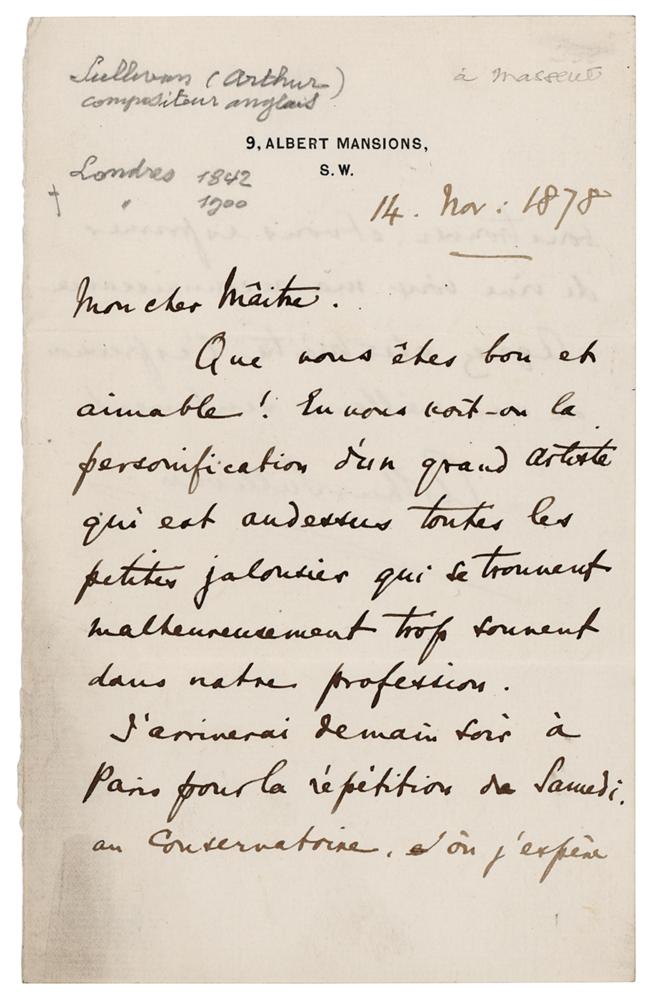 Sullivan (Arthur)
compositeur anglais
à Massenet
9, ALBERT MANSIONS,
S. W.
Londres 1842
† " 1900
14. Nov: 1878
Mon cher Maître.
Que vous êtes bon et
aimable! En vous voit-on la
personification d'un grand artiste
qui est audessus toutes les
petites jalousies qui se trouvent
malheureusement trop souvent
dans notre profession.
J'arriverai demain soir à
Paris pour la répétition de Samedi.
au Conservatoire, où j'espère